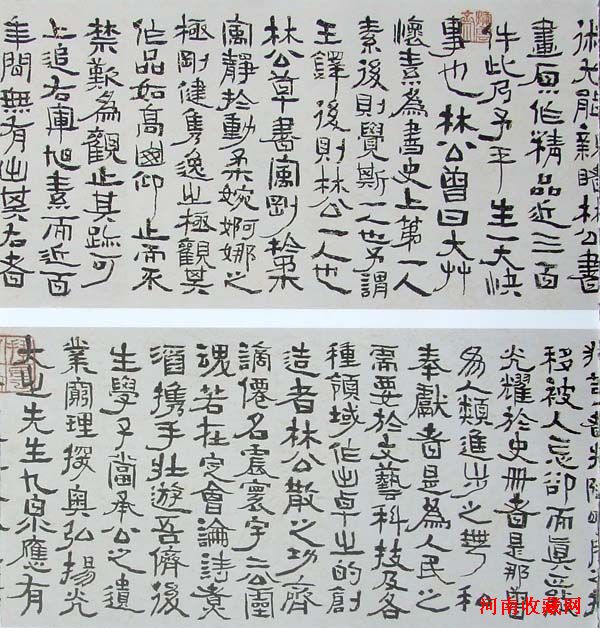 術尤能親睹林公書
畫原作精品近三百
件此乃予平生一大快
事也林公曾曰大艸
懷素為書史上第一人
素後則覺斯一人也予謂
王鐸後則林公一人也
林公草書寓剛於柔
寓靜於動柔婉婀娜之
極剛健雋逸之極觀其
作品如高仰止而不
禁歎為觀止其跡可
上追右軍旭素而近百
年間無有出其右者
移被人忘卻而真
光耀於史冊者是那些
為人類進步之無私
奉獻者是為人民之
需要於文藝科技及各
種領域作出卓出的創
造者林公散之功齊
謫僊名震寰宇二公靈
魂若在定會論詩煮
酒携手壯遊吾儕後
生學子當承公之遺
業窮理探奧弘揚光
大之先生九泉應有
河南收藏网